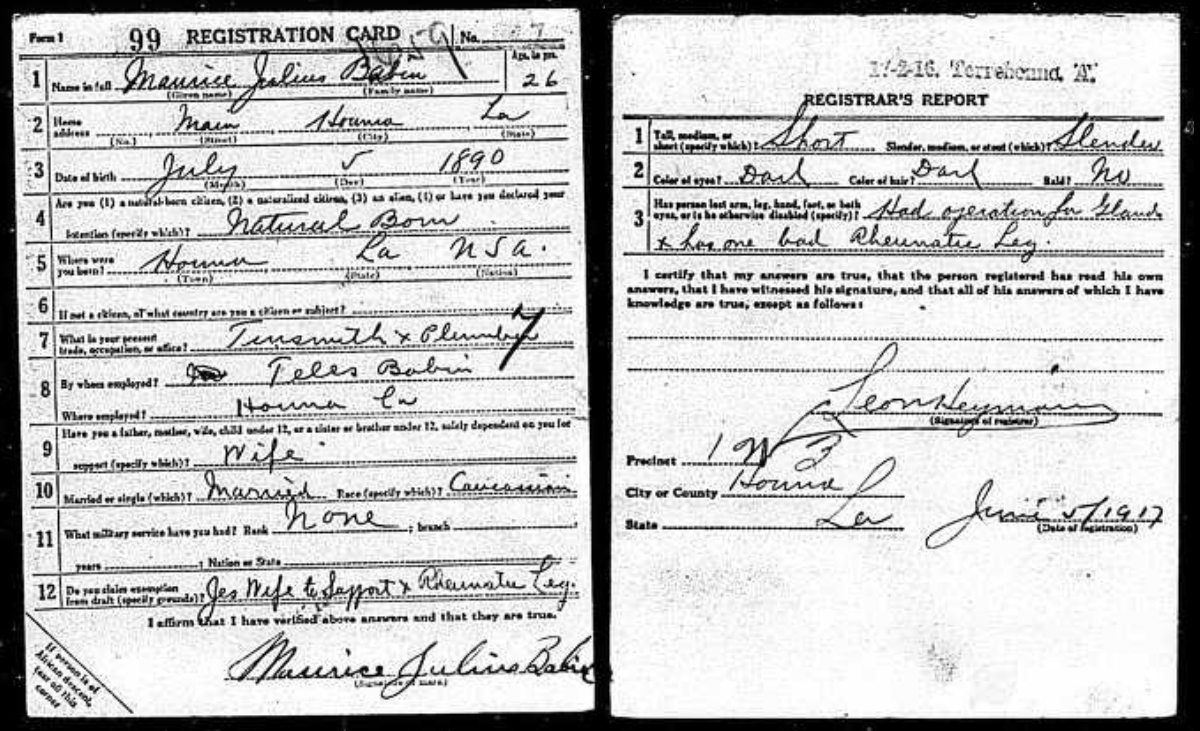 Form 1 99 REGISTRATION CARD No. 7
1 Name in full Maurice Julius Babin Age, in yrs. 26
(Given name) (Family name)
2 Home address Main Houma La
(No.) (Street) (City) (State)
3 Date of birth July 5 1890
(Month) (Day) (Year)
4 Are you (1) a natural-born citizen, (2) a naturalized citizen, (3) an alien, (4) or have you declared your
intention (specify which)? Natural Born
5 Where were you born? Houma La USA.
(Town) (State) (Nation)
6 If not a citizen, of what country are you a citizen or subject?
7 What is your present trade, occupation, or office? Tinsmith & Plumber 7
8 By whom employed? Teles Babin
Where employed? Houma La
9 Have you a father, mother, wife, child under 12, or a sister or brother under 12, solely dependent on you for
support (specify which)? Wife
10 Married or single (which)? Married Race (specify which)? Caucasian
11 What military service have you had? Rank None ; branch ;
years ; Nation or State
12 Do you claim exemption from draft (specify grounds)? Yes Wife to Support & Rheumatic Leg.
I affirm that I have verified above answers and that they are true.
Maurice Julius Babin
(Signature or mark)
If person is of
African descent,
tear off this
corner
17-2-16. Terrebound, A.
REGISTRAR'S REPORT
1 Tall, medium, or short (specify which)? Short Slender, medium, or stout (which)? Slender
2 Color of eyes? Dark Color of hair? Dark Bald? No
3 Has person lost arm, leg, hand, foot, or both
eyes, or is he otherwise disabled (specify)? Had operation for Glands
& has one bad Rheumatic Leg.
I certify that my answers are true, that the person registered has read his own
answers, that I have witnessed his signature, and that all of his answers of which I have
knowledge are true, except as follows:
Leon Heymann
(Signature of registrar)
Precinct 1 W 3
City or County Houma
State La June 5/1917
(Date of registration)